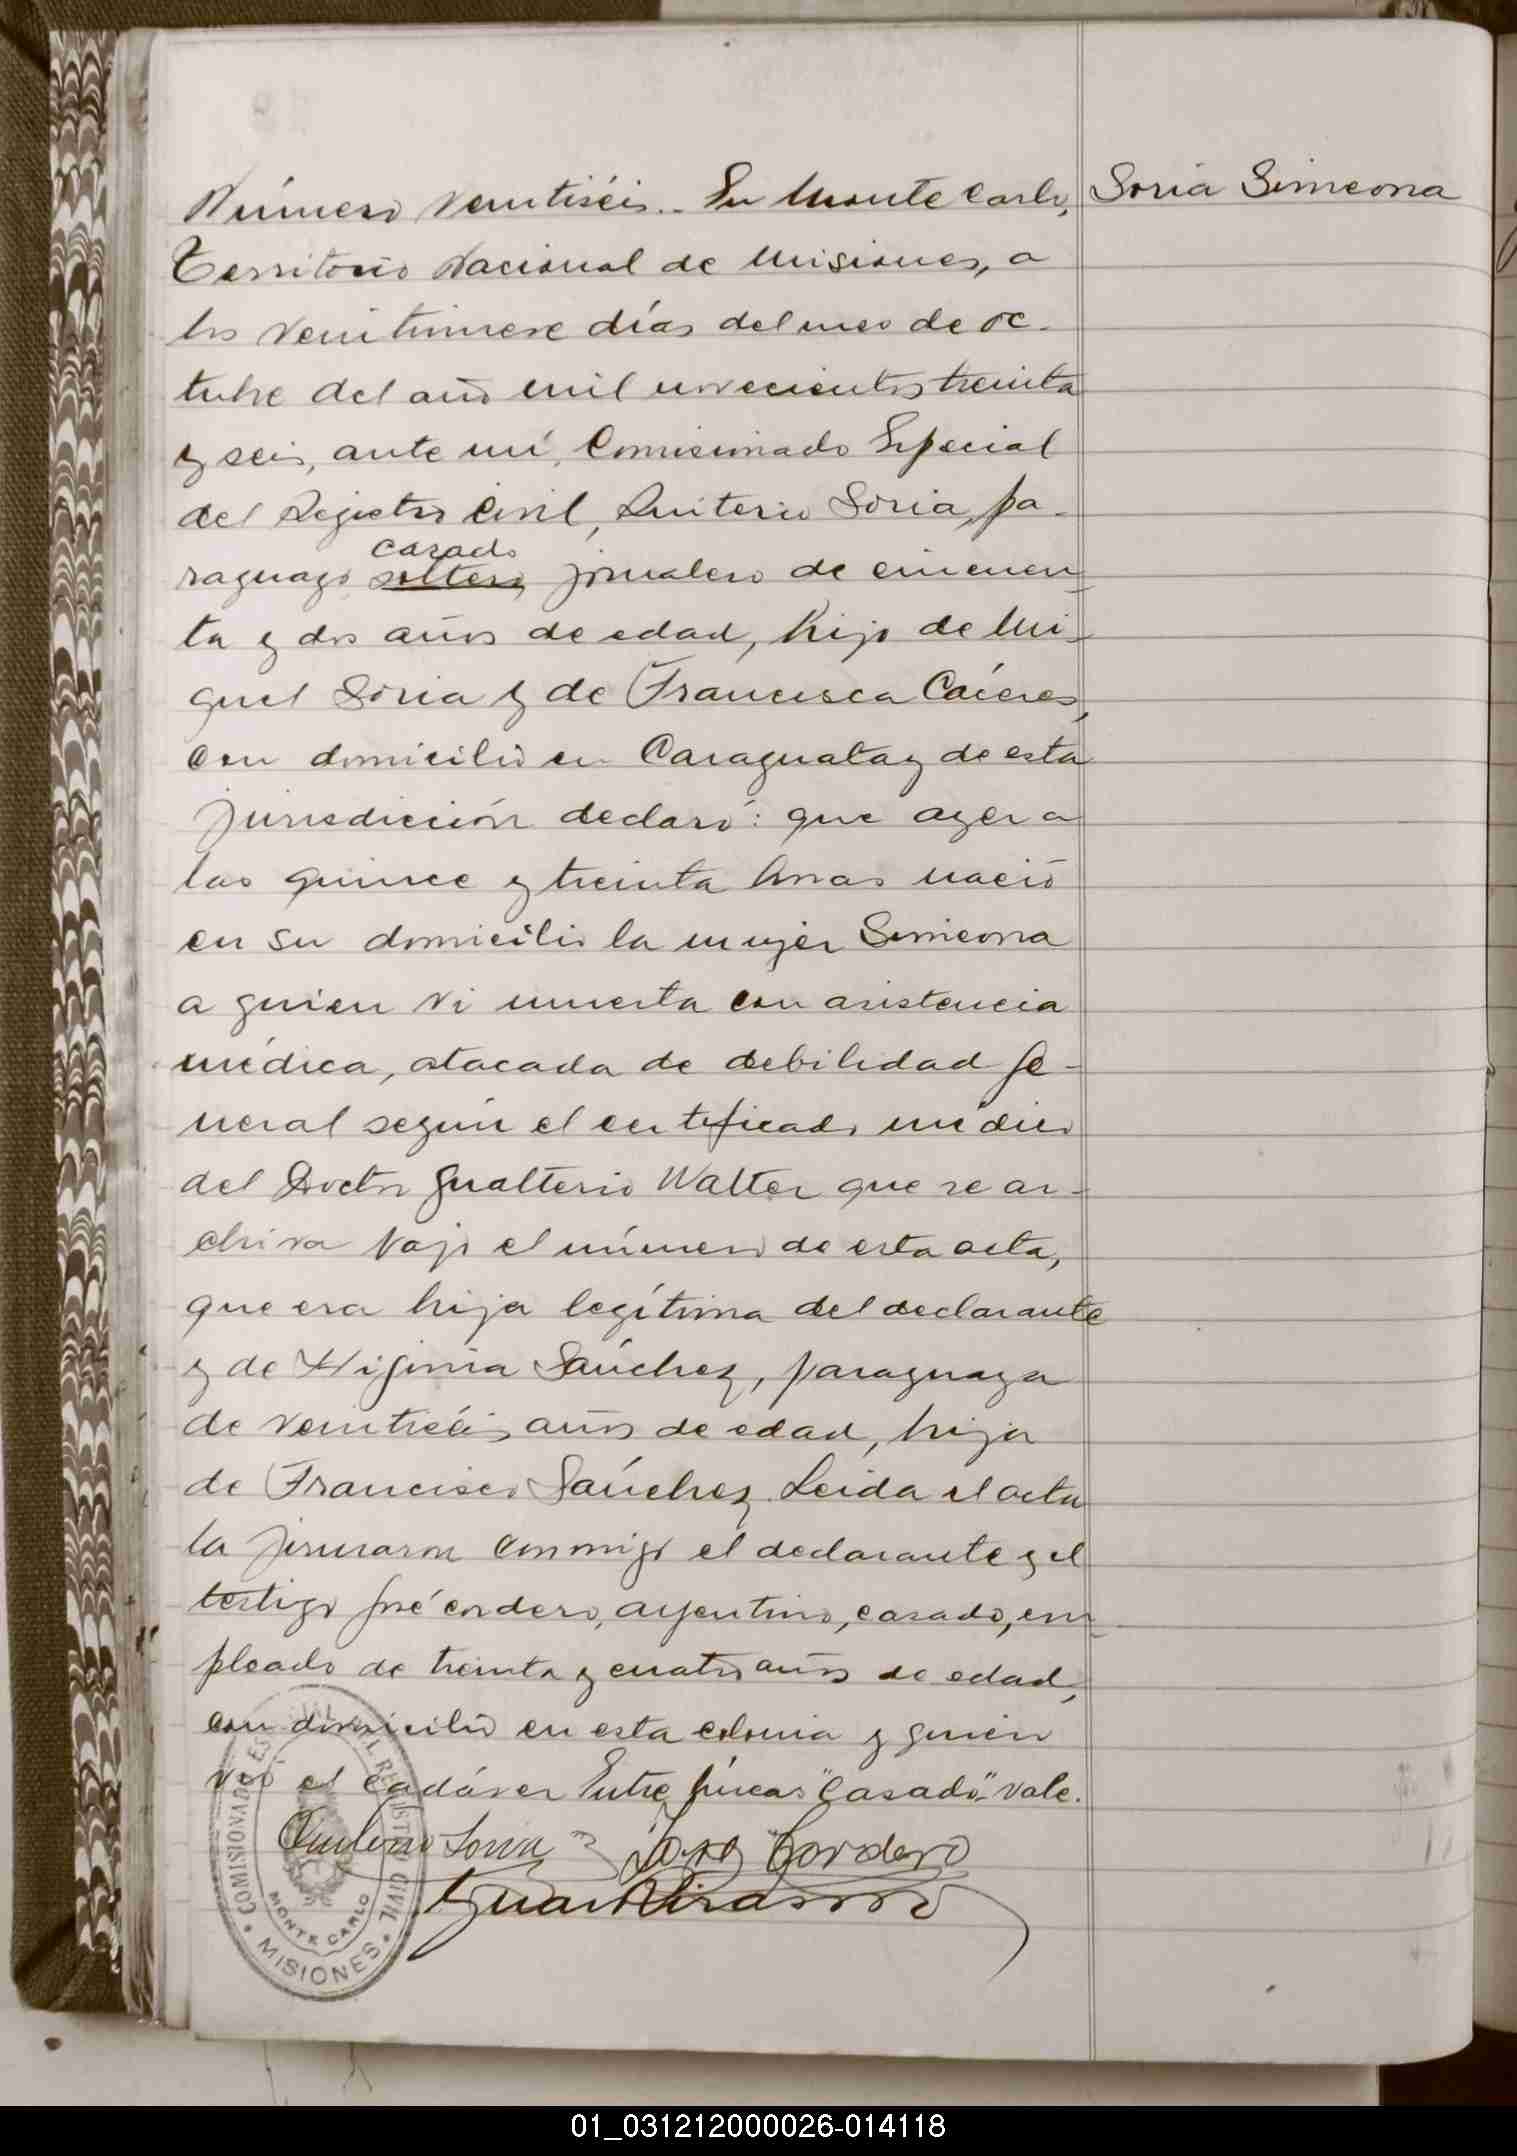 Número veintiséis.- En Monte Carlo,
Soria Simeona
Territorio Nacional de Misiones, a
los veintinueve días del mes de oc-
tubre del año mil novecientos treinta
y seis, ante mí, Comisionado Especial
del Registro Civil, Quiterio Soria, pa-
casado
raguayo, soltero, jornalero de cincuen-
ta y dos años de edad, hijo de Mi-
guel Soria y de Francisca Cáceres,
con domicilio en Caraguatay de esta
jurisdicción declaró: que ayer a
las quince y treinta horas nació
en su domicilio la mujer Simeona
a quien vi muerta con asistencia
médica, atacada de debilidad ge-
neral según el certificado médico
del Doctor Gualterio Walter que se ar-
chiva vajo el número de esta acta,
que era hija legítima del declarante
y de Higinia Sánchez, paraguaya
de veintiséis años de edad, hija
de Francisco Sánchez. Leída el acta
la firmaron conmigo el declarante y el
testigo José Cordero, argentino, casado, em-
pleado de treinta y cuatro años de edad,
con domicilio en esta colonia y quien
vió el cadáver Entre líneas "Casado"- vale.
Quiterio Soria José Cordero
COMISIONADO ESPECIAL DEL REGISTRO CIVIL
MONTE CARLO
MISIONES
01_031212000026-014118